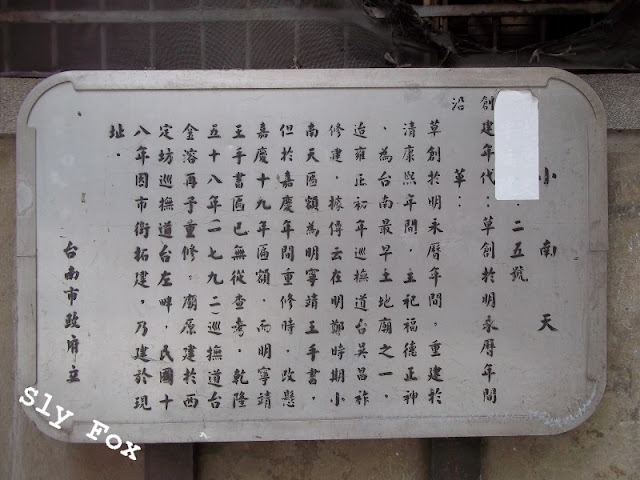 小南天
．二五號
創建年代：草創於明永曆年間
沿　革：
草創於明永曆年間，重建於
清康熙年間，主祀福德正神
，為台南最早土地廟之一，
造雍正初年巡撫道台吳昌祚
修建，據傳云在明鄭時期小
南天匾額為明寧靖王手書，
但於嘉慶年間重修時，改懸
嘉慶十九年匾額，而明寧靖
王手書匾已無從查考，乾隆
五十八年(一七九二)巡撫道台
金溶再予重修，廟原建於西
定坊巡撫道台左畔，民國十
八年因市街拓建，乃建於現
址．
台南市政府立
sly Fox